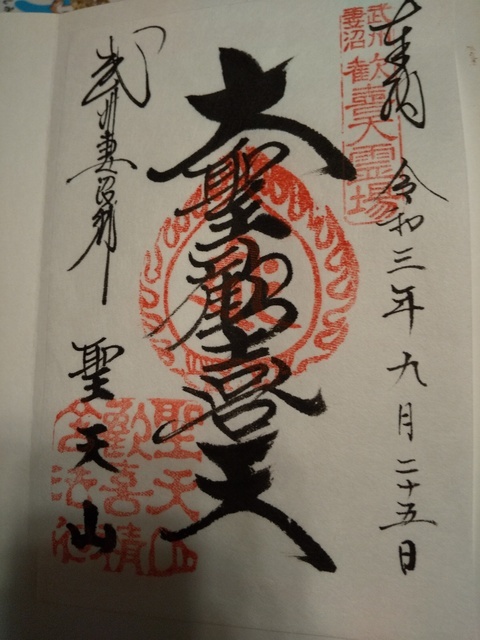 奉納
令和三年九月二十五日
武州
妻沼
歓喜天霊場
大聖歓喜天
武州妻沼郷
聖天山
聖天山
歓喜院